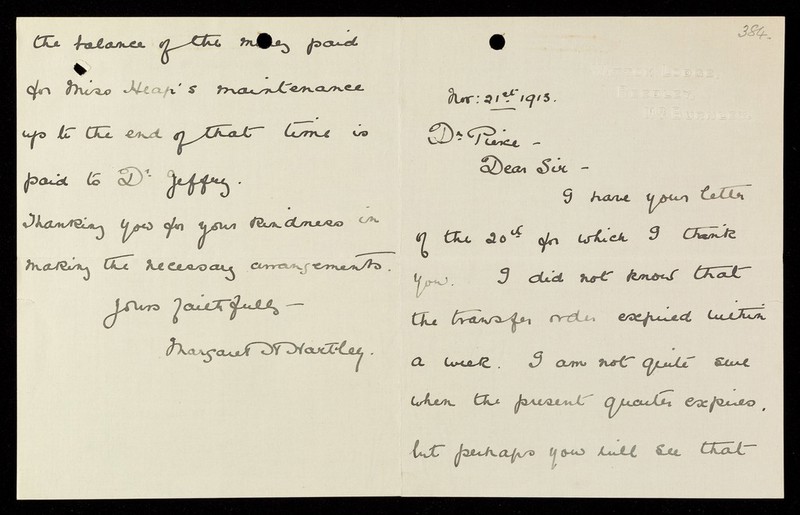 384.
Nov: 21st 1913.
Dr Pierce -
Dear Sir -
I have your letter
of the 20th for which I thank
you. I did not know that
the transfer order expired within
a week. I am not quite sure
when the present quarter expires,
but perhaps you will see that
the balance of the money paid
for Miss Heap's maintenance
up to the end of that time is
paid to Dr Jeffrey.
Thanking you for your kindness in
making the necessary arrangements.
Yours faithfully —
Margaret H Hartley.